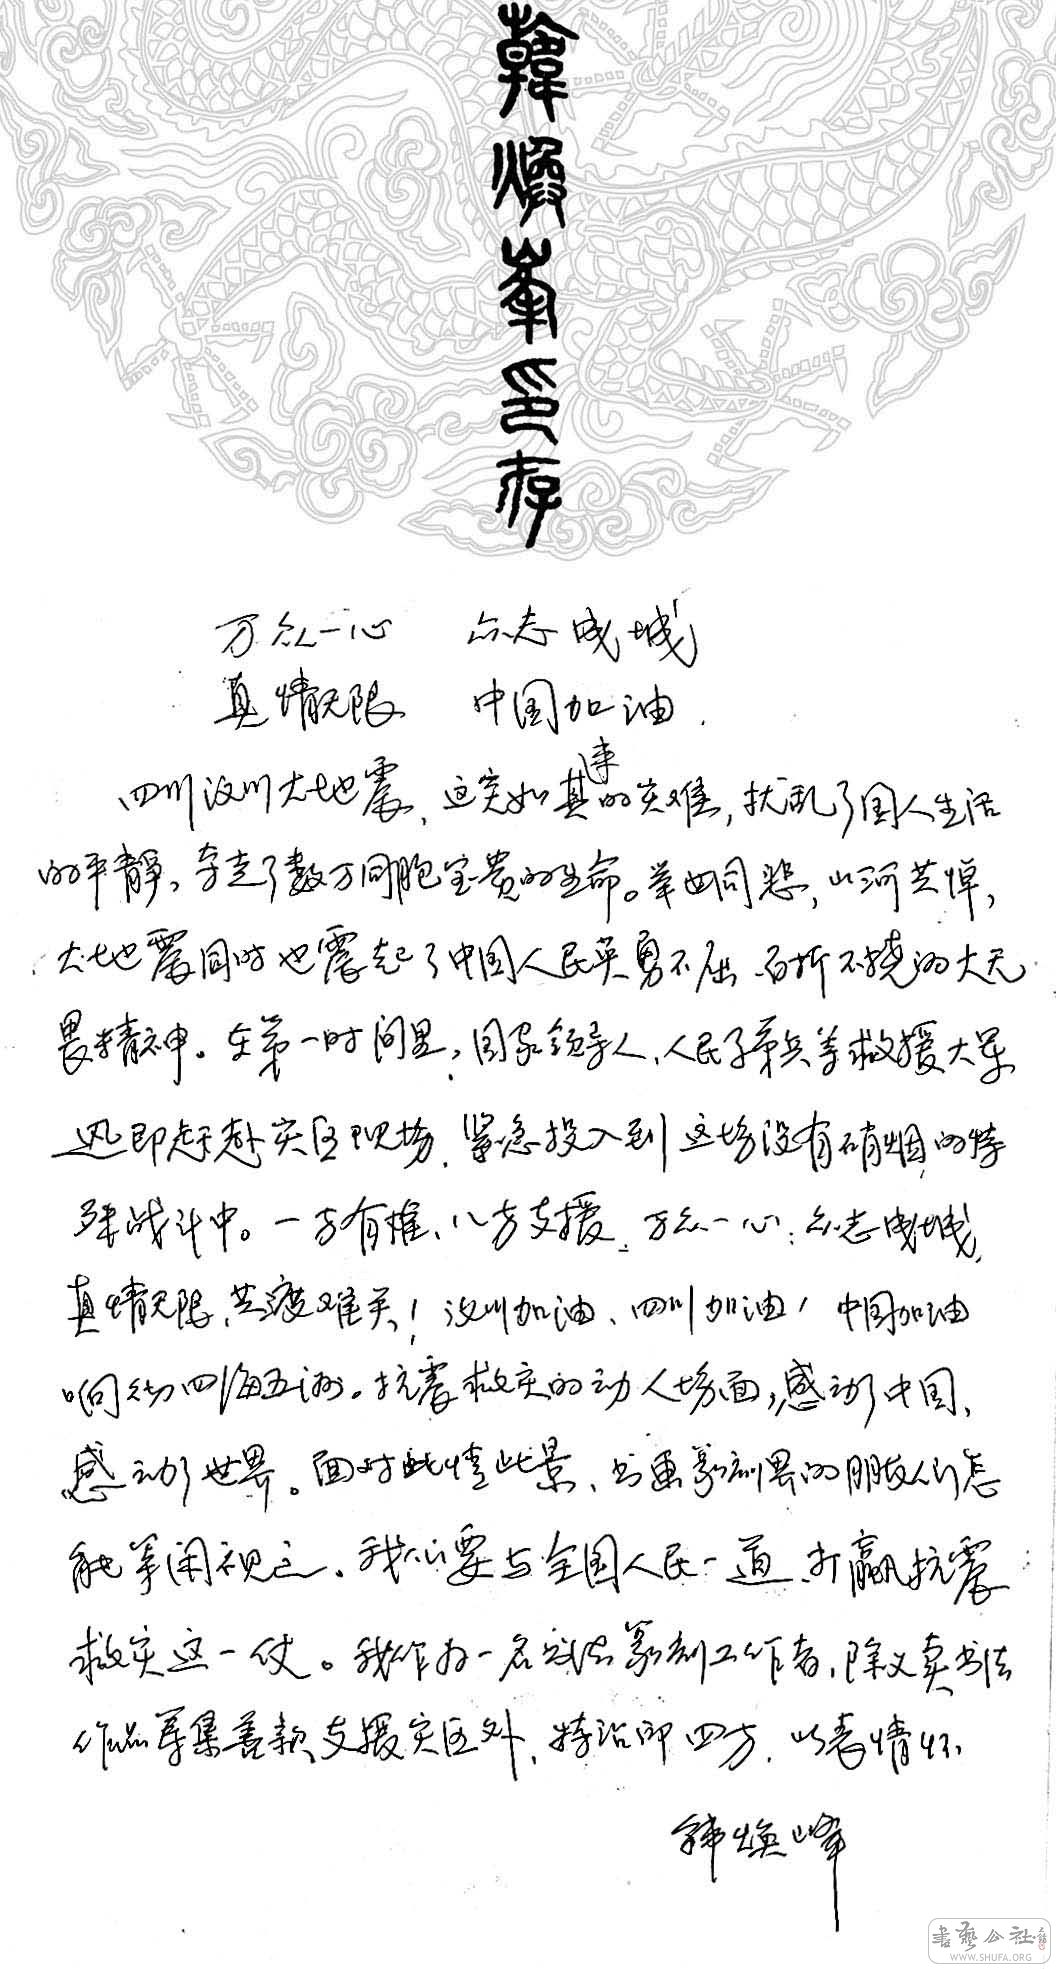 韓煥峯印存
万众一心 众志成城
真情无限 中国加油.
四川汶川大地震，这突如其来的灾难，扰乱了国人生活
的平静，夺走了数万同胞宝贵的生命。举世同悲，山河共悼，
大地震同时也震起了中国人民英勇不屈、百折不挠的大无
畏精神。在第一时间里，国家领导人、人民子弟兵等救援大军
迅即赶赴灾区现场，紧急投入到这场没有硝烟的特
殊战斗中。一方有难、八方支援，万众一心，众志成城，
真情无限，共渡难关！汶川加油、四川加油，中国加油
响彻四海五洲。抗震救灾的动人场面，感动了中国，
感动了世界。面对此情此景，书画篆刻界的朋友们怎
能等闲视之。我们要与全国人民一道，打赢抗震
救灾这一仗。我作为一名书法篆刻工作者，除义卖书法
作品筹集善款支援灾区外，特治印四方，以表情怀
韩焕峰
書藝公社
WWW.SHUFA.ORG